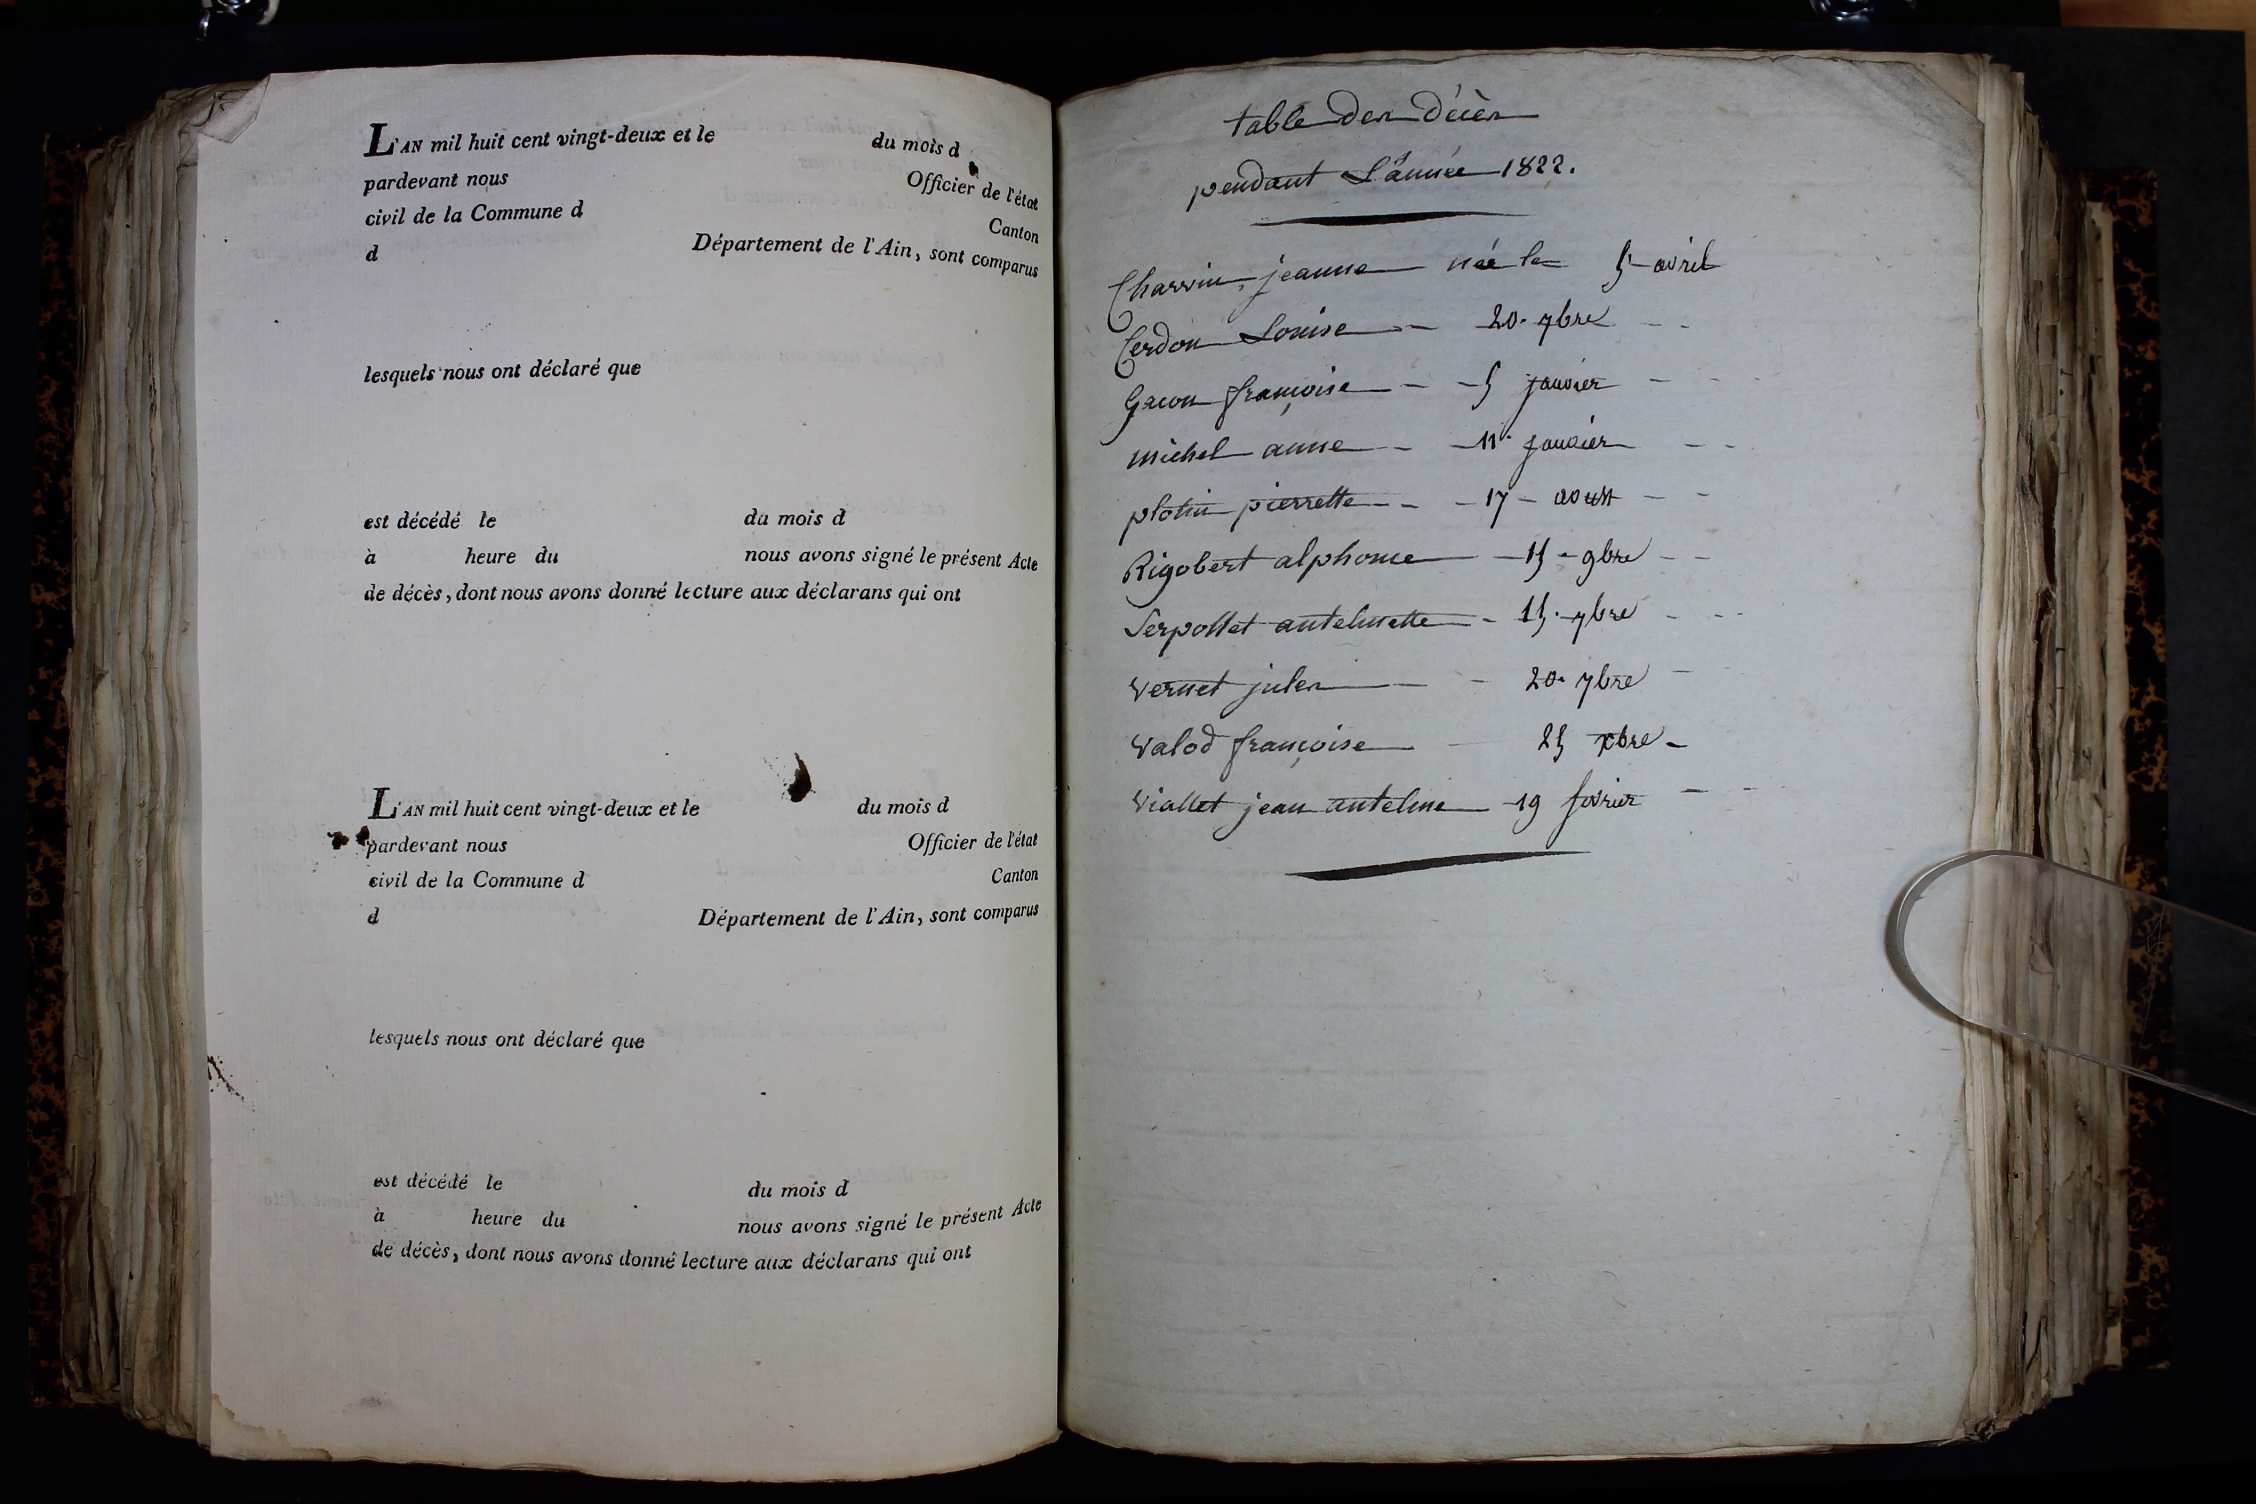 L'AN mil huit cent vingt-deux et le du mois d
pardevant nous Officier de l'état
civil de la Commune d Canton
d Département de l'Ain, sont comparus
lesquels nous ont déclaré que
est décédé le du mois d
à heure du nous avons signé le présent Acte
de décès, dont nous avons donné lecture aux déclarans qui ont
L'AN mil huit cent vingt-deux et le du mois d
pardevant nous Officier de l'état
civil de la Commune d Canton
d Département de l'Ain, sont comparus
lesquels nous ont déclaré que
est décédé le du mois d
à heure du nous avons signé le présent Acte
de décès, dont nous avons donné lecture aux déclarans qui ont
table des décès
pendant L'année 1822.
Charvin, jeanne née le 5 avril
Cerdon Louise - 20. 7bre - -
Gacon françoise - - 5 janvier - - -
michel anne - - 11. janvier - -
plotin pierrette - - - 17 - aoust - -
Rigobert alphonse - 15 - 9bre - -
Serpollet antelmette - 15. 7bre - -
Vernet jules - - 20. 7bre -
Valod françoise - 25 xbre -
Viallet jean antelme - 19 fevrier - -